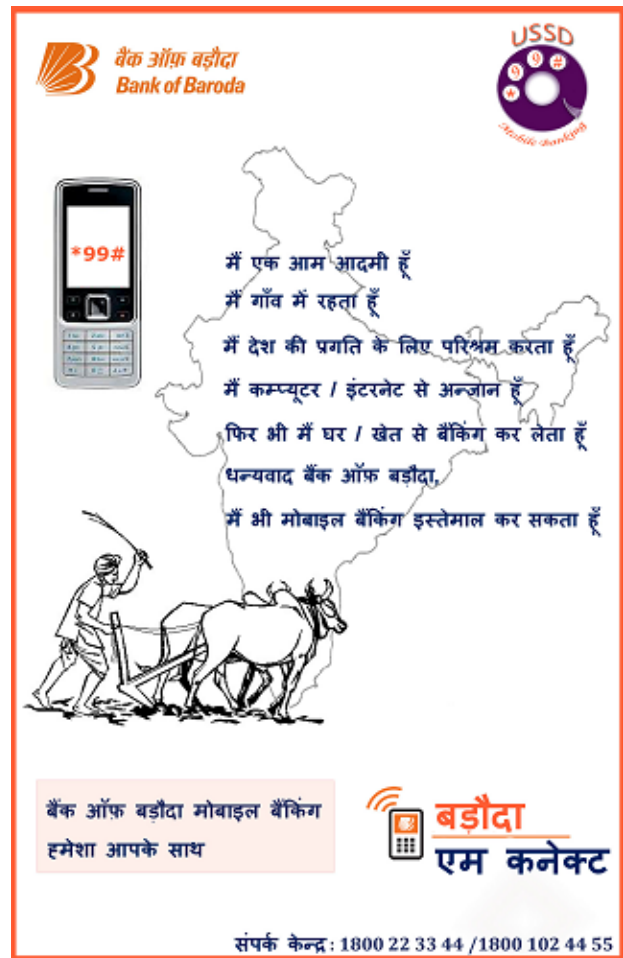 बैंक ऑफ़ बड़ौदा
Bank of Baroda
USSD
*99#
Mobile Banking
*99#
मैं एक आम आदमी हूँ
मैं गाँव में रहता हूँ
मैं देश की प्रगति के लिए परिश्रम करता हूँ
मैं कम्प्यूटर / इंटरनेट से अन्जान हूँ
फिर भी मैं घर / खेत से बैंकिंग कर लेता हूँ
धन्यवाद बैंक ऑफ़ बड़ौदा,
मैं भी मोबाइल बैंकिंग इस्तेमाल कर सकता हूँ
बैंक ऑफ़ बड़ौदा मोबाइल बैंकिंग
हमेशा आपके साथ
बड़ौदा
एम कनेक्ट
संपर्क केन्द्र : 1800 22 33 44 /1800 102 44 55